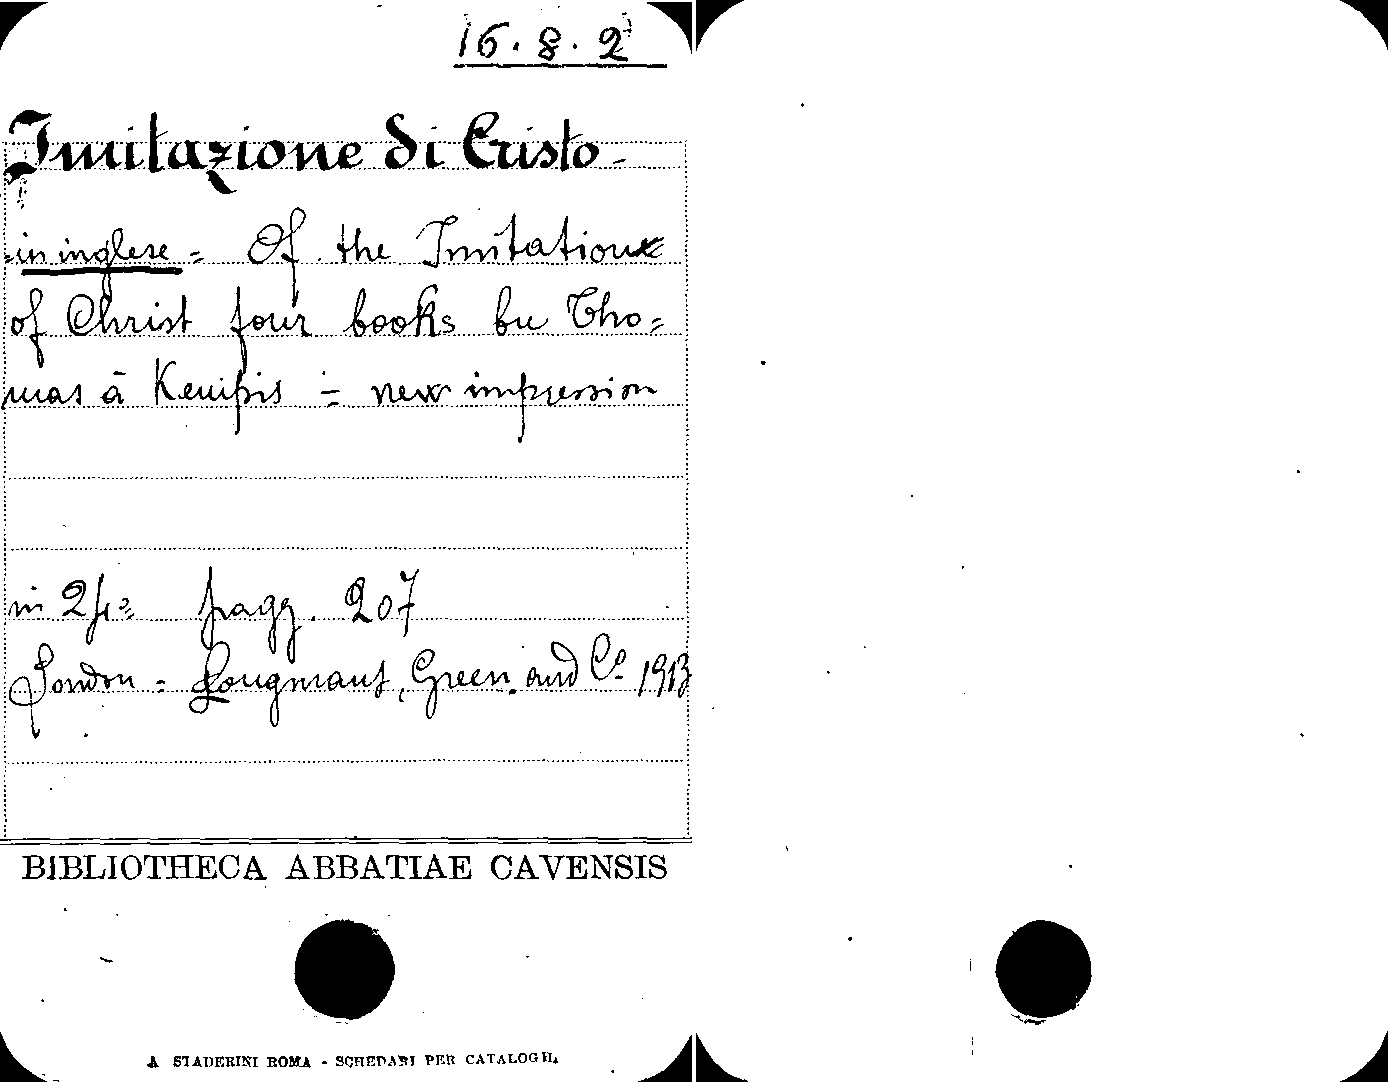 16.8.2
Imitazione di Cristo -
= in inglese = Of the Imitation
of Christ four books bu Tho=
mas à Kempis = new impression
in 24° pagg. 207
London = Longmans, Green and C° 1913
BIBLIOTHECA ABBATIAE CAVENSIS
A STADERINI ROMA - SCHEDARI PER CATALOGHI